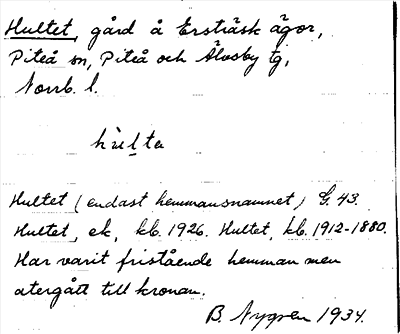 Hultet, gård å Ersträsk ägor,
Piteå sn, Piteå och Älvsby tg,
Norrb. l.
hùl̲ta
Hultet (endast hemmansnamnet) G. 43.
Hultet, ek, kb. 1926. Hultet, kb. 1912-1880.
Har varit fristående hemman men
atergått till kronan.
B. Nygren 1934.